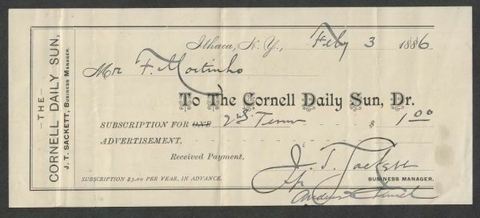 THE
CORNELL DAILY SUN,
J. T. SACKETT, BUSINESS MANAGER.
Ithaca, N. Y., Feby 3 1886
Mr F. Moitinho
To The Cornell Daily Sun, Dr.
SUBSCRIPTION FOR ONE 2nd Term $ 1.00
ADVERTISEMENT, $
Received Payment,
J. T. Sackett
BUSINESS MANAGER.
SUBSCRIPTION $3.00 PER YEAR, IN ADVANCE.